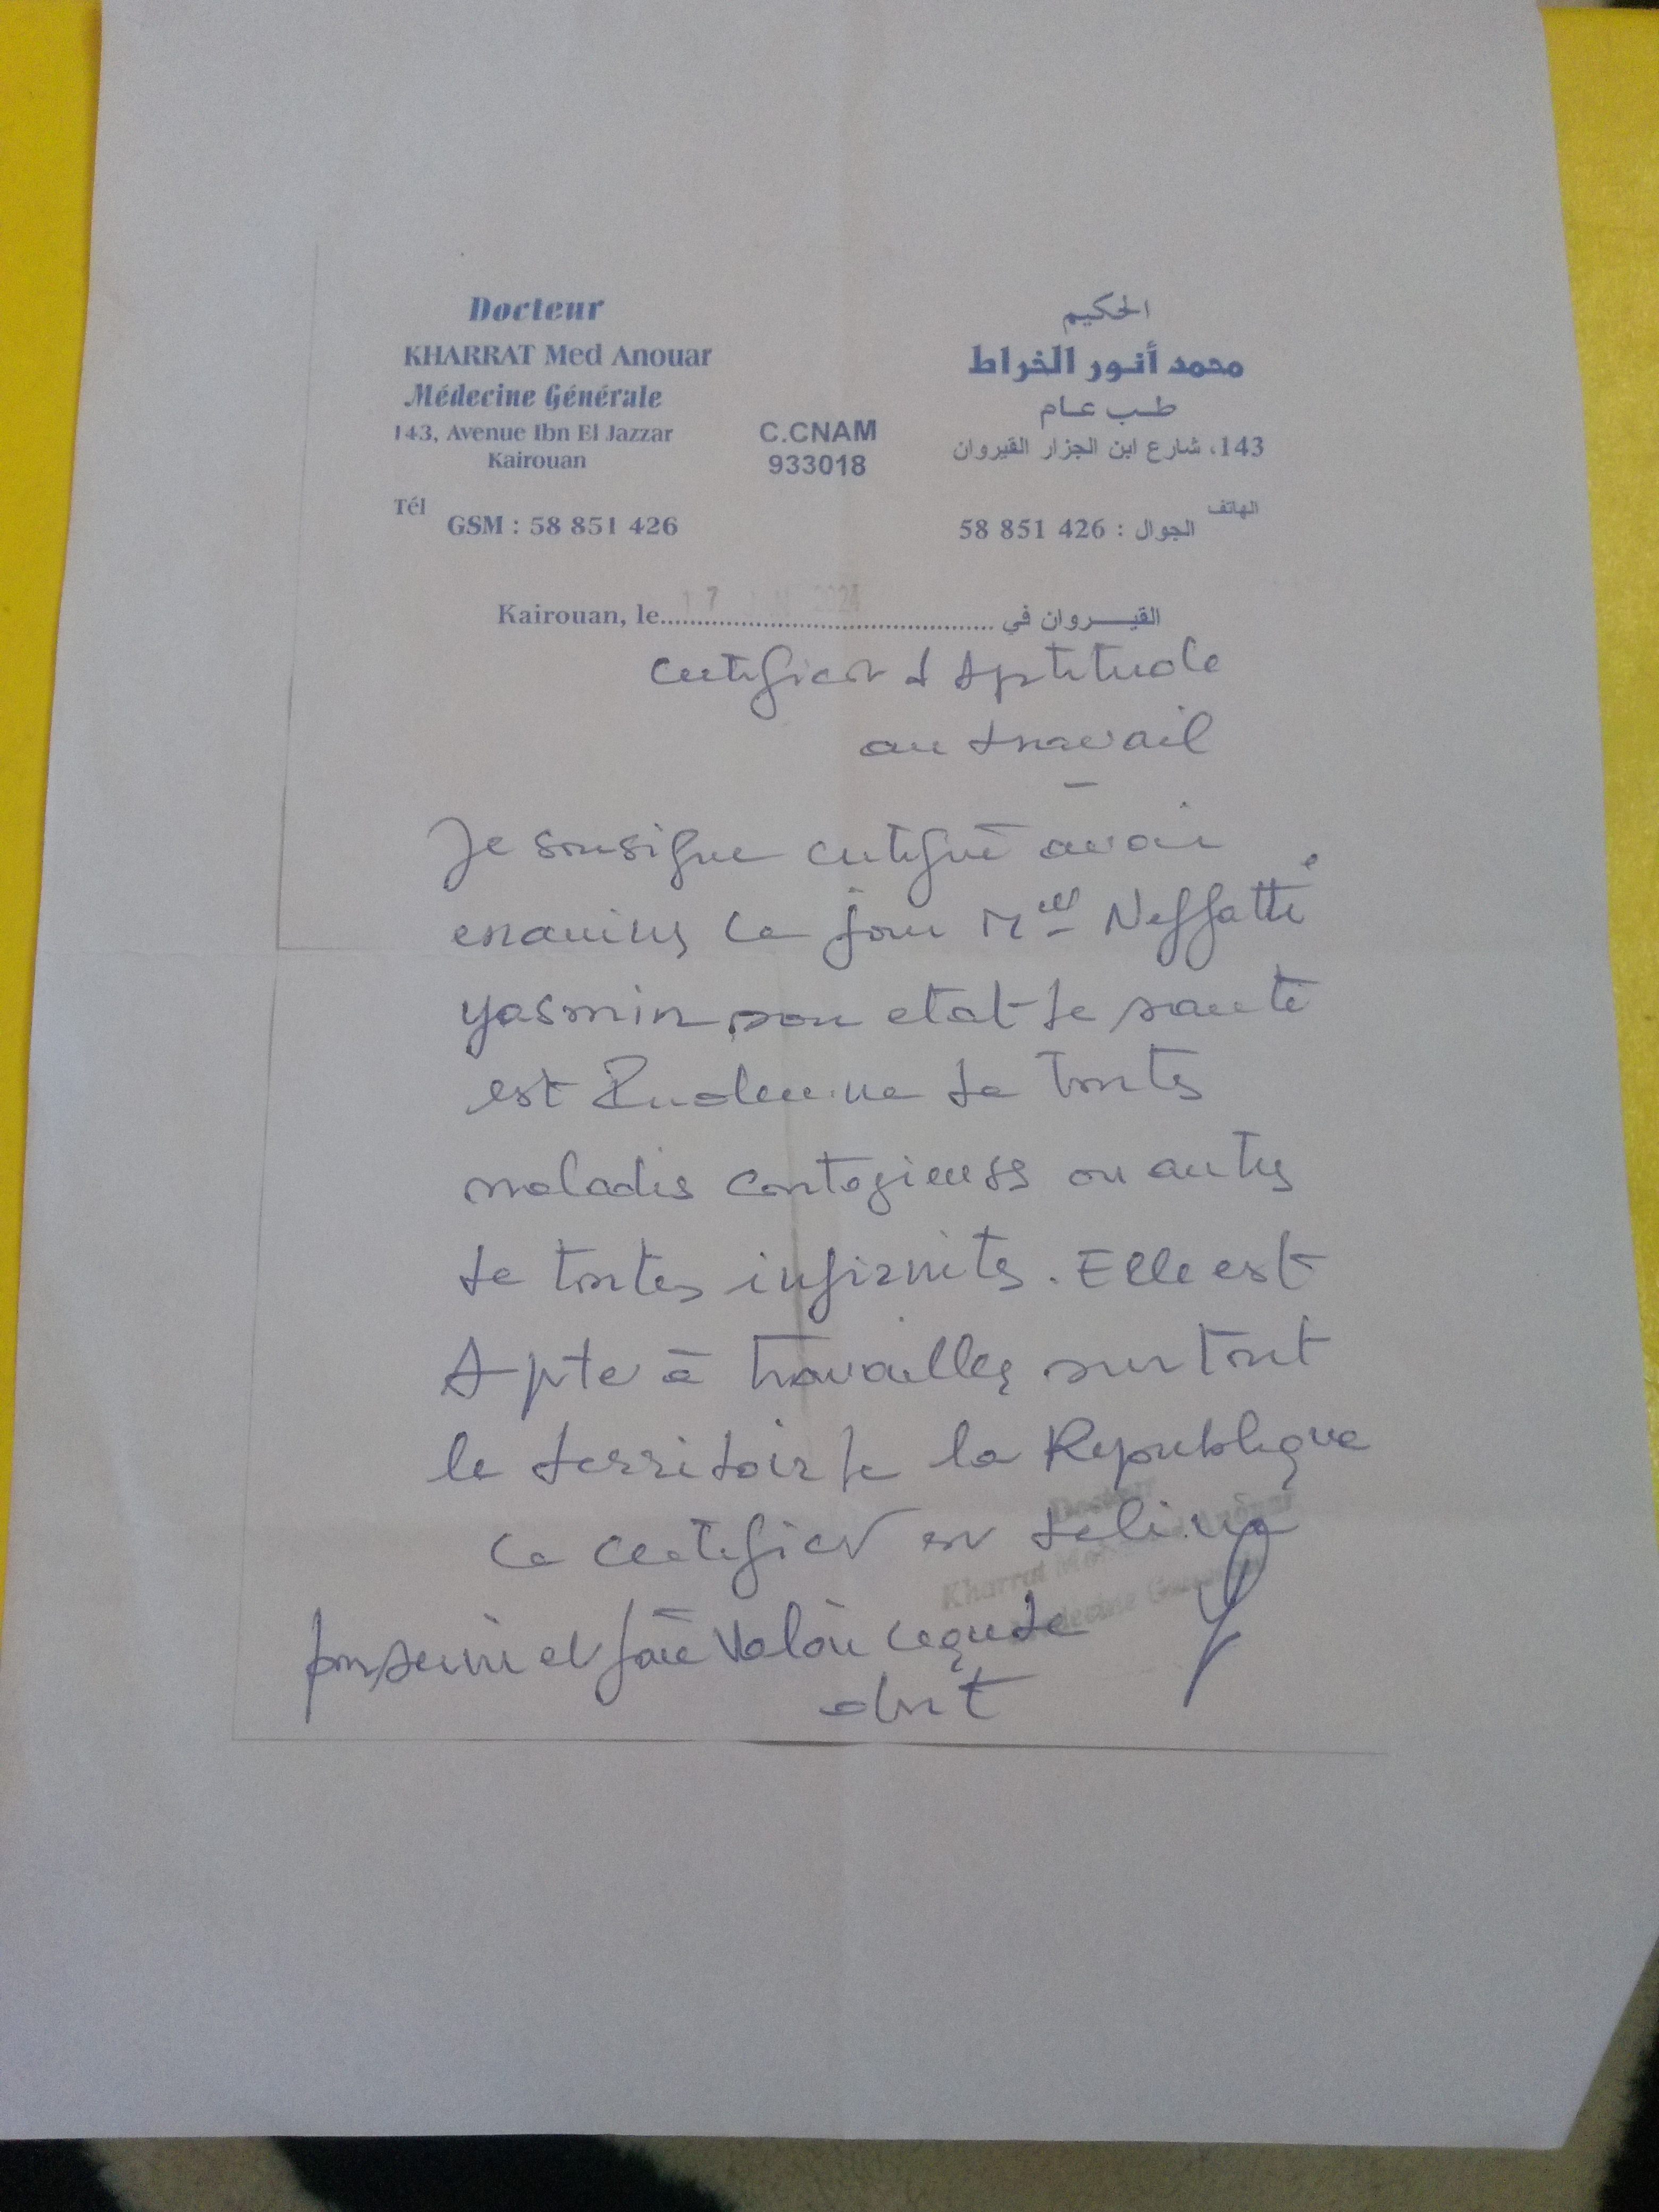 Docteur
KHARRAT Med Anouar
Médecine Générale
143, Avenue Ibn El Jazzar
Kairouan
Tél
GSM : 58 851 426
C.CNAM
933018
الحكيم
محمد أنور الخراط
طب عام
143، شارع ابن الجزار القيروان
الهاتف
الجوال : 426 851 58
Kairouan, le 17 2024 القيروان في
Certificat d'Aptitude
au travail
Je soussigné certifie avoir
examiné ce jour Mlle Neffatti
yasmin son etat de santé
est de toutes
maladies contagieuses ou autres
de toutes infirmités. Elle est
Apte à travailler sur tout
le territoire de la Republique
Ce certificat est délivré
pour servir et faire valoir ce que de
droit
Docteur
Kharrat Mohamed Anouar
Medecine Generale